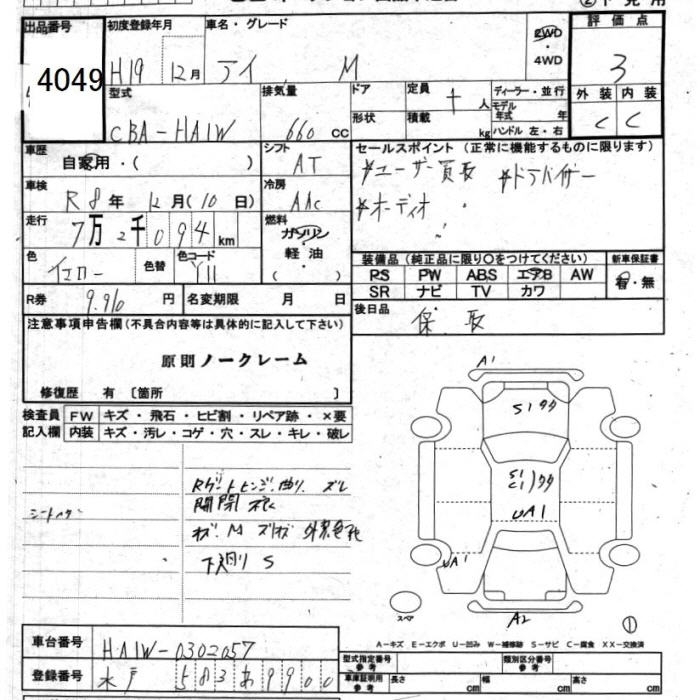 出品番号 初度登録年月 車名・グレード 2WD 4WD 評価点
4049 H19 12月 アイ M 3
型式 排気量 ドア 定員 人 ディーラー・並行 外装 内装
CBA-HA1W 660 cc 形状 積載 kg モデル年式 年 ハンドル 左・右 C C
車歴 シフト セールスポイント (正常に機能するものに限ります)
自家用・( ) AT *ユーザー買取 *ドラバイザー
車検 冷房 *オーディオ
R8年 12月(10日) AAC
走行 燃料
7万2千094km ガソリン・軽油・( )
色 色替 色コード 装備品(純正品に限り○をつけてください) 新車保証書
イエロー Y11 PS PW ABS エアB AW 有・無
SR ナビ TV カワ
R券 9.910円 名変期限 月 日 後日品
保 取
注意事項申告欄(不具合内容等は具体的に記入して下さい)
原則ノークレーム
修復歴 有〔箇所 〕
検査員 FW キズ・飛石・ヒビ割・リペア跡・×要
記入欄 内装 キズ・汚レ・コゲ・穴・スレ・キレ・破レ
A1
S1
S1
C1
UA1
UA1
A2
Rゲートヒンジ曲り ズレ
開閉
下廻り S
スペア
①
A−キズ E−エクボ U−凹み W−補修跡 S−サビ C−腐食 XX−交換済
車台番号 HA1W-0302057
登録番号 水戸 583 あ 9900
型式指定番号 参考 類別区分番号 参考
車庫証明用 参考 長さ cm 幅 cm 高さ cm